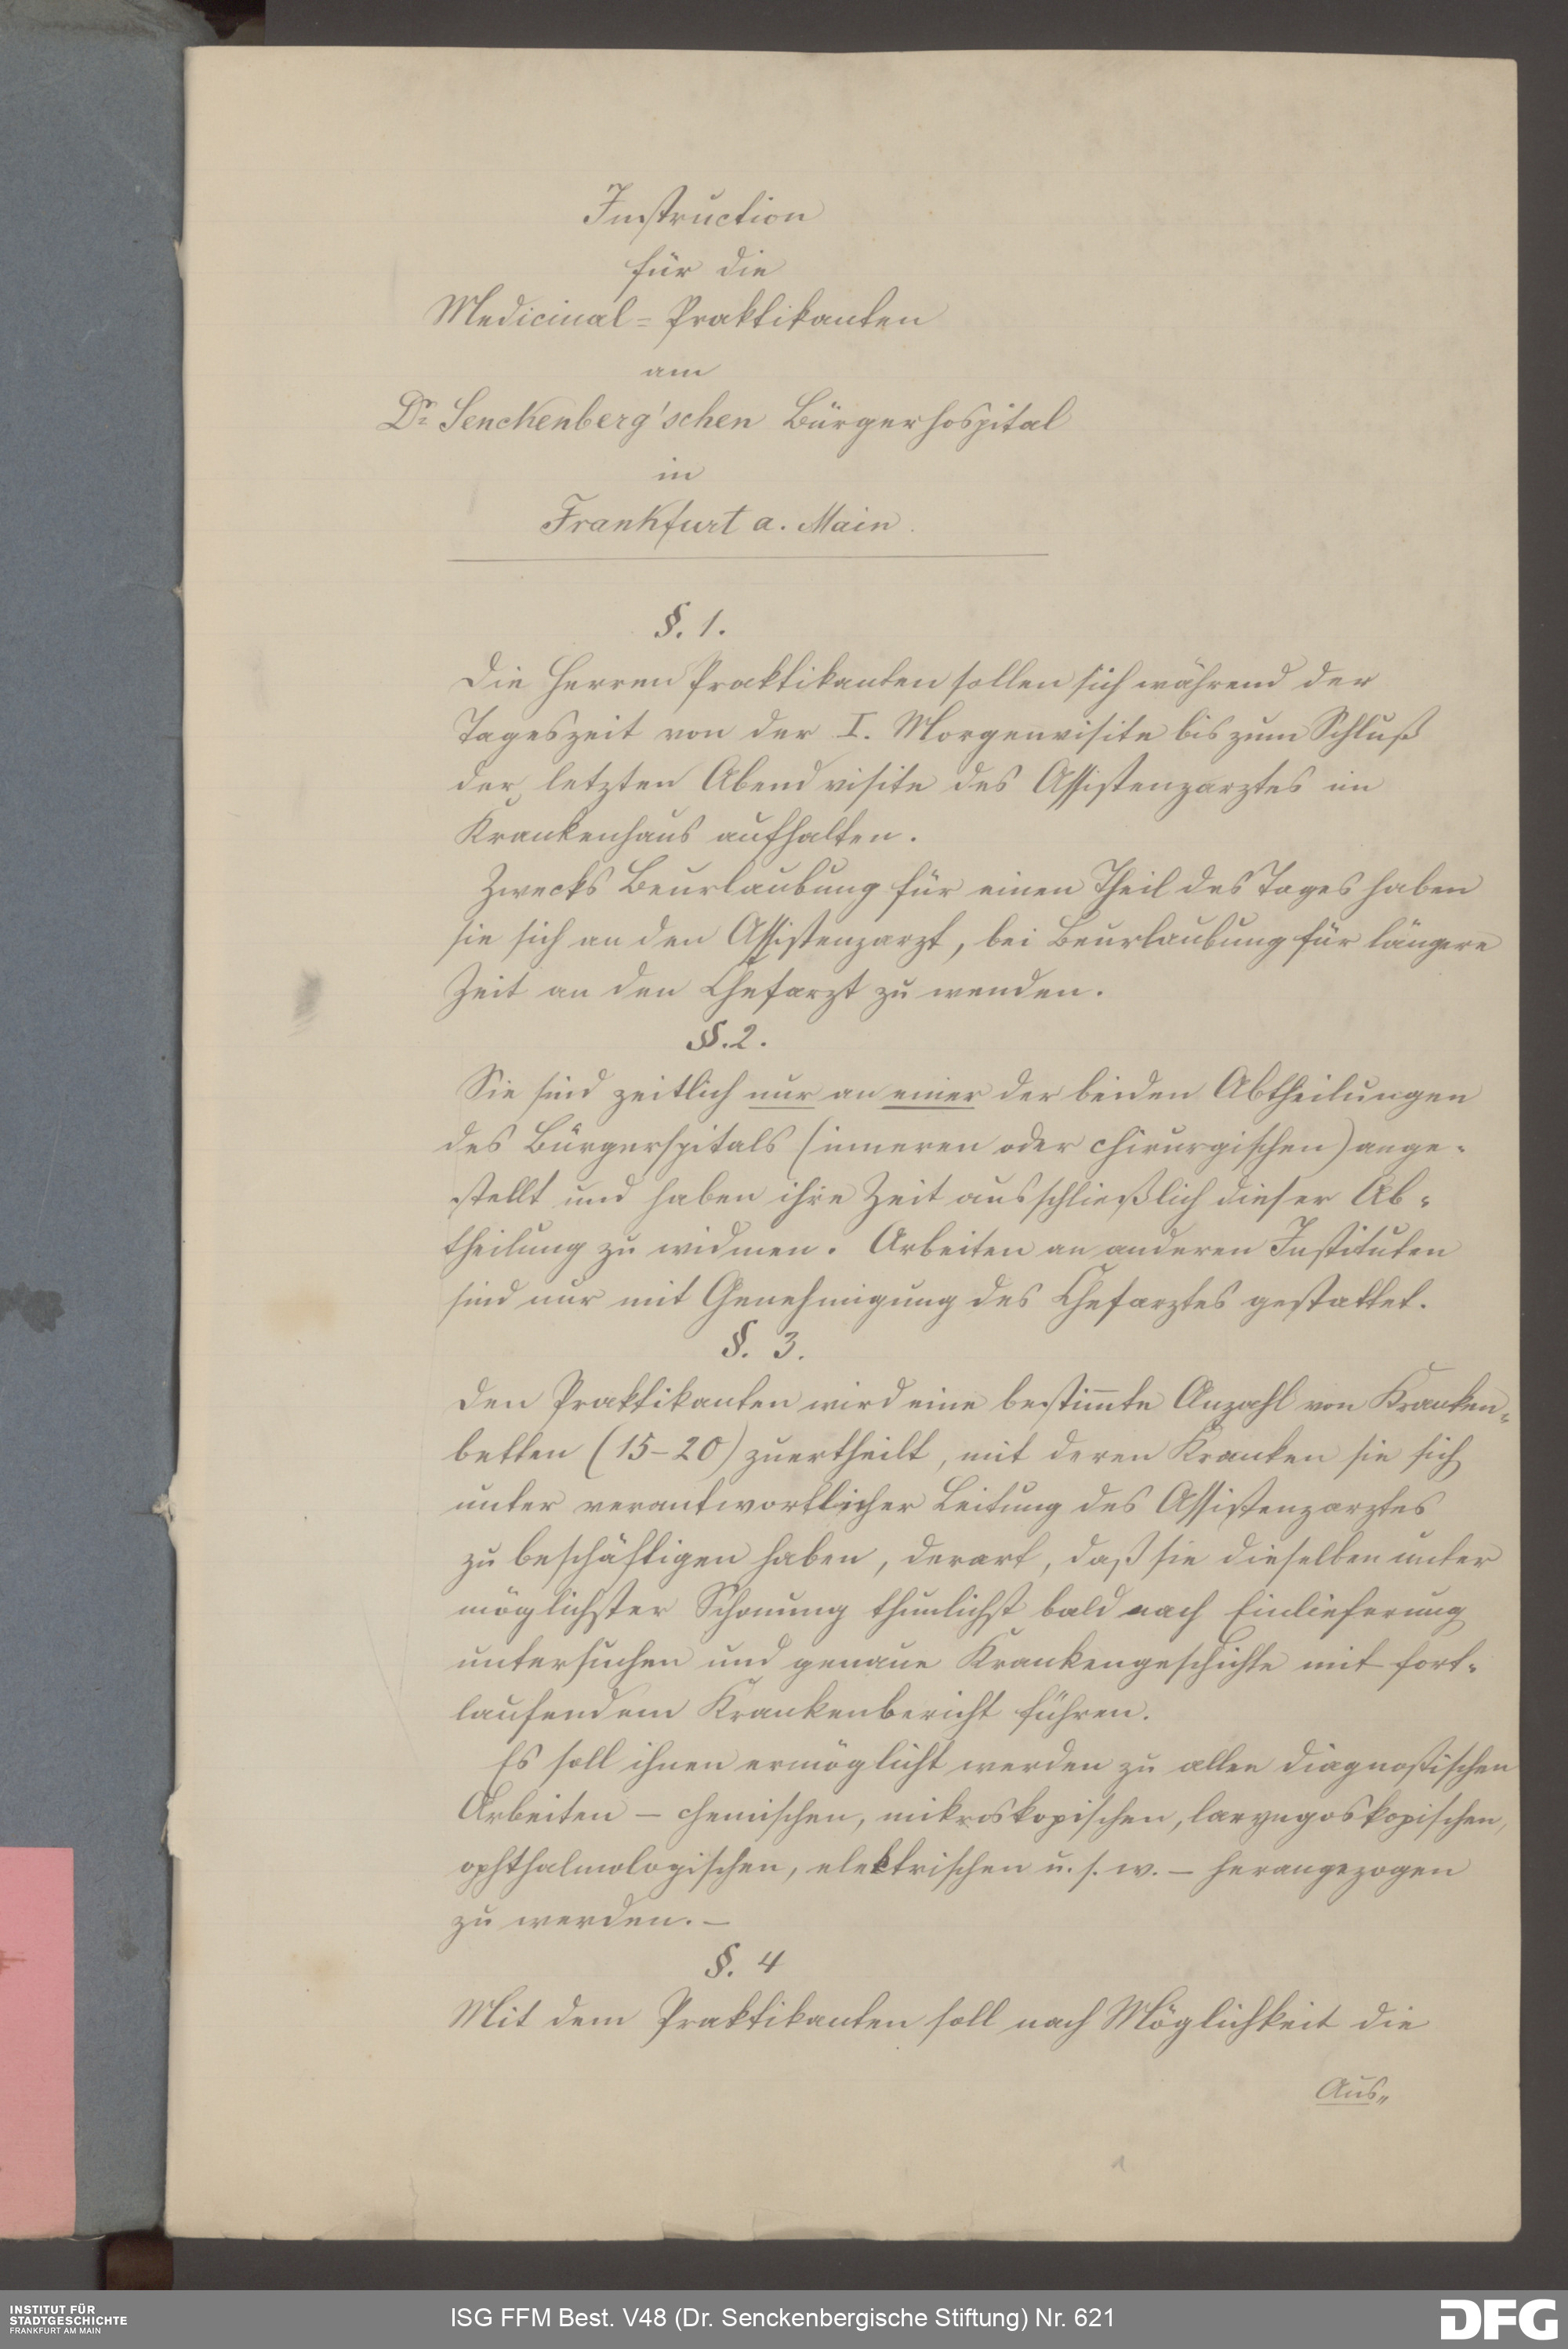 Instruction
für die
Medicinal=Praktikanten
am
Dr. Senckenberg'schen Bürgerhospital
in
Frankfurt a. Main.
§. 1.
Die Herren Praktikanten sollen sich während der
Tageszeit von der I. Morgenvisite bis zum Schluß
der letzten Abendvisite des Assistenzarztes im
Krankenhaus aufhalten.
Zwecks Beurlaubung für einen Theil des Tages haben
sie sich an den Assistenzarzt, bei Beurlaubung für längere
Zeit an den Chefarzt zu wenden.
§. 2.
Sie sind zeitlich nur an einer der beiden Abtheilungen
des Bürgerspitals (inneren oder chirurgischen) ange-
stellt und haben ihre Zeit ausschließlich dieser Ab-
theilung zu widmen. Arbeiten an anderen Instituten
sind nur mit Genehmigung des Chefarztes gestattet.
§. 3.
Den Praktikanten wird eine bestimmte Anzahl von Kranken-
betten (15-20) zuertheilt, mit deren Kranken sie sich
unter verantwortlicher Leitung des Assistenzarztes
zu beschäftigen haben, derart, daß sie dieselben unter
möglichster Schonung thunlichst bald nach Einlieferung
untersuchen und genaue Krankengeschichte mit fort-
laufendem Krankenbericht führen.
Es soll ihnen ermöglicht werden zu allen diagnostischen
Arbeiten – chemischen, mikroskopischen, laryngoskopischen,
ophthalmologischen, elektrischen u. s. w. – herangezogen
zu werden. –
§. 4
Mit dem Praktikanten soll nach Möglichkeit die
Aus-
1
INSTITUT FÜR
STADTGESCHICHTE
FRANKFURT AM MAIN
ISG FFM Best. V48 (Dr. Senckenbergische Stiftung) Nr. 621
DFG